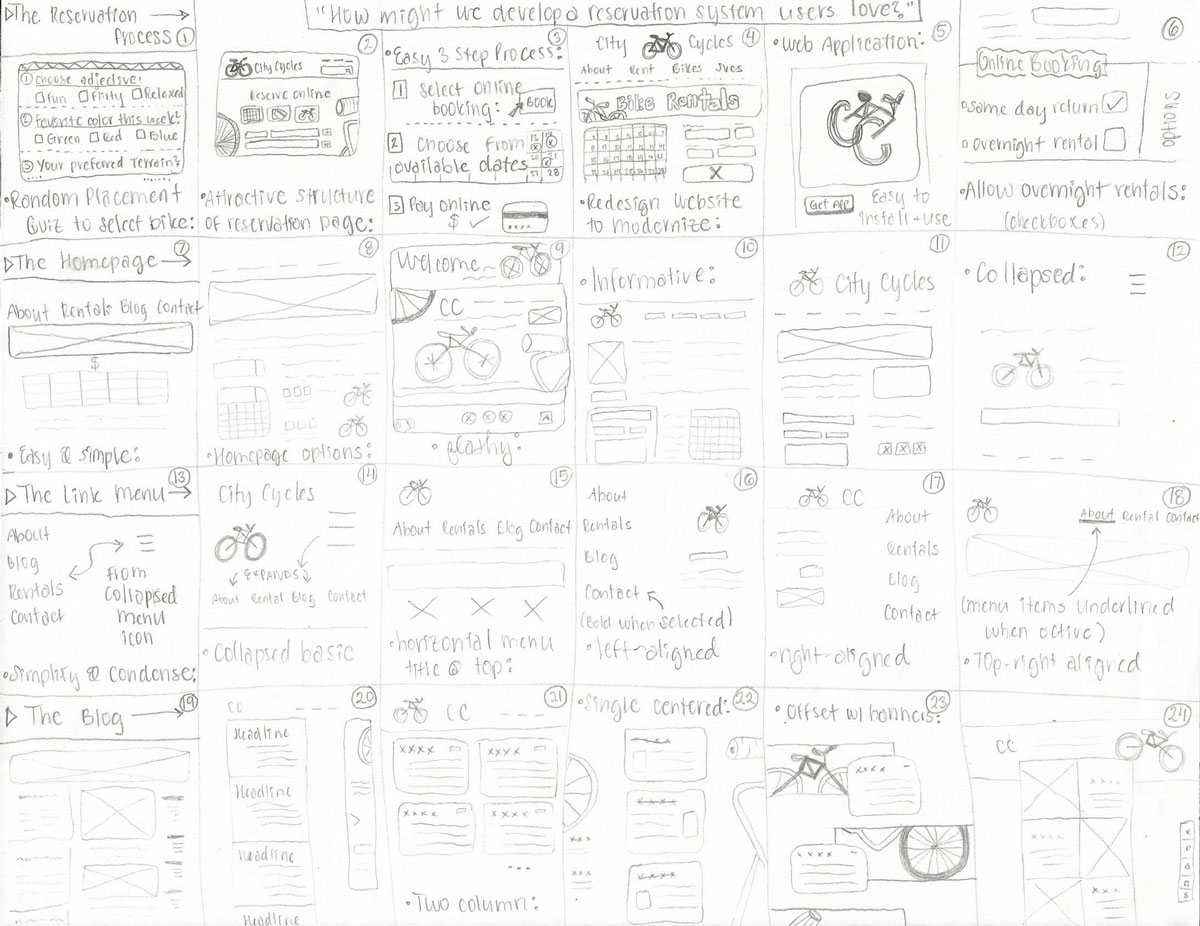 "How might we develop a reservation system users love?"
▷The Reservation →
Process ①
① Choose adjective:
□Fun □Flirty □Relaxed
② Favorite color this week?
□Green □Red □Blue
③ Your preferred terrain?
•Random Placement
Quiz to select bike:
②
City Cycles
Reserve Online
•Attractive structure
of reservation page:
③
•Easy 3 Step Process:
1 Select online
booking:
BOOK
2 Choose from
available dates
27 28
3 Pay online
$ ✓
xxxx
④
City Cycles
About Rent Bikes Svcs
Bike Rentals
X
•Redesign website
to modernize:
⑤
•Web Application:
CC
Get App
Easy to
install + use
⑥
Online Booking
•same day return ☑
•overnight rental □
OPTIONS
•Allow overnight rentals:
(checkboxes)
⑦
▷The Homepage →
About Rentals Blog Contact
$
•Easy & Simple:
⑧
•Homepage options:
⑨
Welcome
CC
•flashy:
⑩
•Informative:
⑪
City Cycles
⑫
•Collapsed:
⑬
▷The Link Menu→
About
Blog
Rentals
Contact
from
collapsed
menu
icon
•Simplify & Condense:
⑭
City Cycles
EXPANDS
About Rental Blog Contact
•Collapsed basic
⑮
About Rentals Blog Contact
•horizontal menu
title @ top:
⑯
About
Rentals
Blog
Contact
(Bold when selected)
•left-aligned
⑰
CC
About
Rentals
Blog
Contact
•right-aligned
⑱
About Rental Contact
(menu items underlined
when active)
•Top-right aligned
⑲
▷ The Blog →
⑳
CC
Headline
Headline
Headline
Headline
㉑
CC
xxxx
xxxx
xxxx
xxxx
•Two column:
㉒
•Single centered:
㉓
•Offset w/ banners:
xxxx
xxxx
㉔
CC
xxxx
xxxx
xxxx